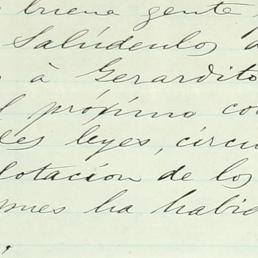 buena gente
Salúdenlos a
à Gerardito
próximo co
les leyes, circu
lotación de los
pues ha habid
,